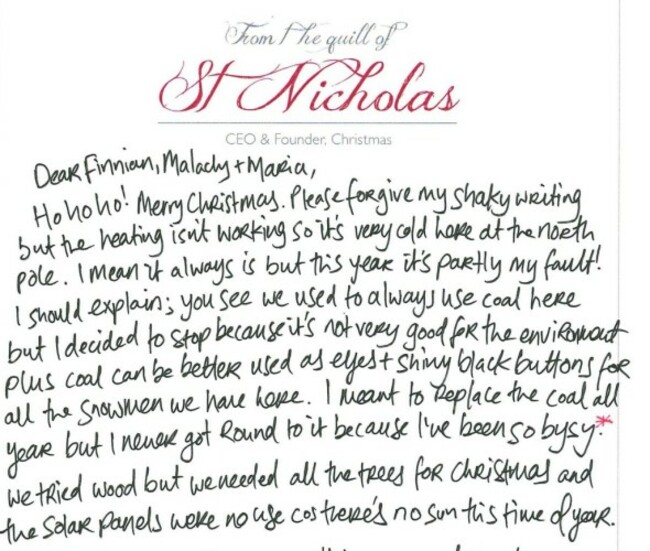 From the quill of
St Nicholas
CEO & Founder, Christmas
Dear Finnian, Malachy + Maria,
Ho ho ho! Merry Christmas. Please forgive my shaky writing
but the heating isn't working so it's very cold here at the north
pole. I mean it always is but this year it's partly my fault!
I should explain; you see we used to always use coal here
but I decided to stop because it's not very good for the environment
plus coal can be better used as eyes + shiny black buttons for
all the snowmen we have here. I meant to replace the coal all
year but I never got round to it because I've been so busy.*
we tried wood but we needed all the trees for Christmas and
the solar panels were no use cos there's no sun this time of year.